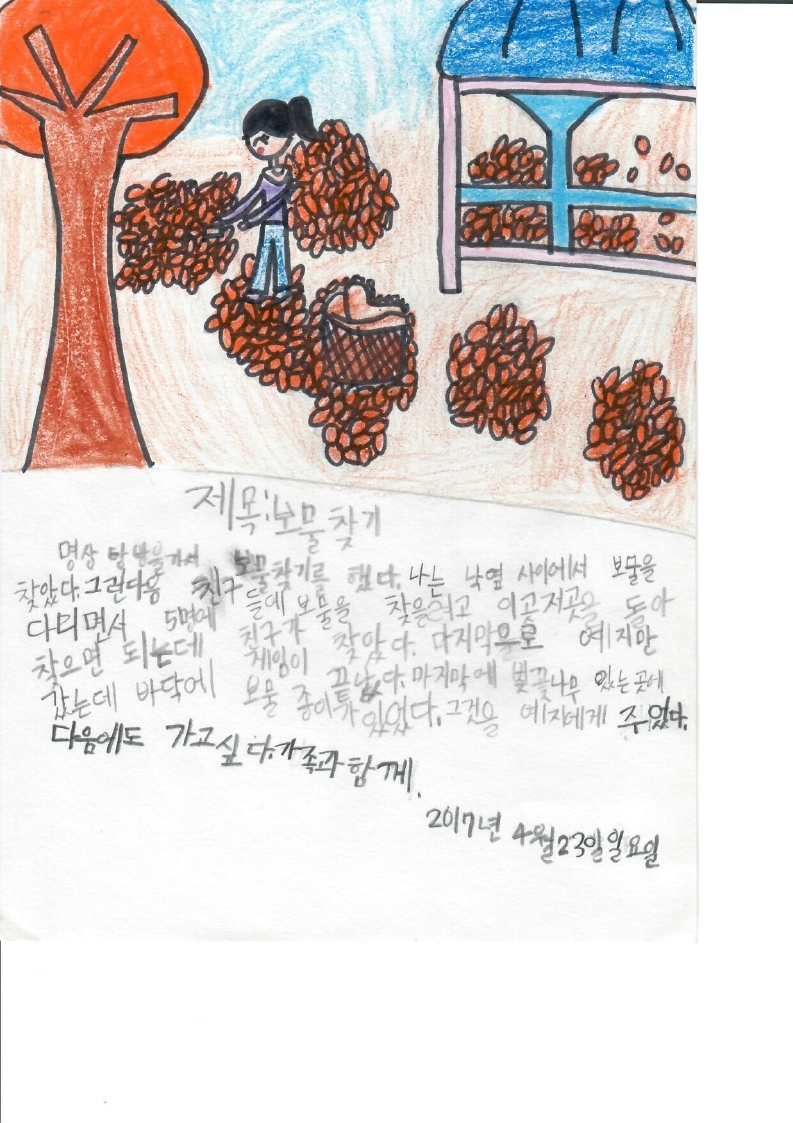 제목:보물찾기
명상 탐방을가서 보물찾기를 했다. 나는 낙엽 사이에서 보물을
찾았다. 그런다음 친구들에 보물을 찾을려고 이곳저곳을 돌아
다리면서 5명에 친구가 찾았다. 다지막으로 예지만
찾으면 되는데 게임이 끝났다. 마지막에 벚꽃나무 있는 곳에
갔는데 바닥에 보물 종이가 있었다. 그것을 예지에게 주었다.
다음에도 가고 싶다. 가족과 함께.
2017년 4월23일일요일